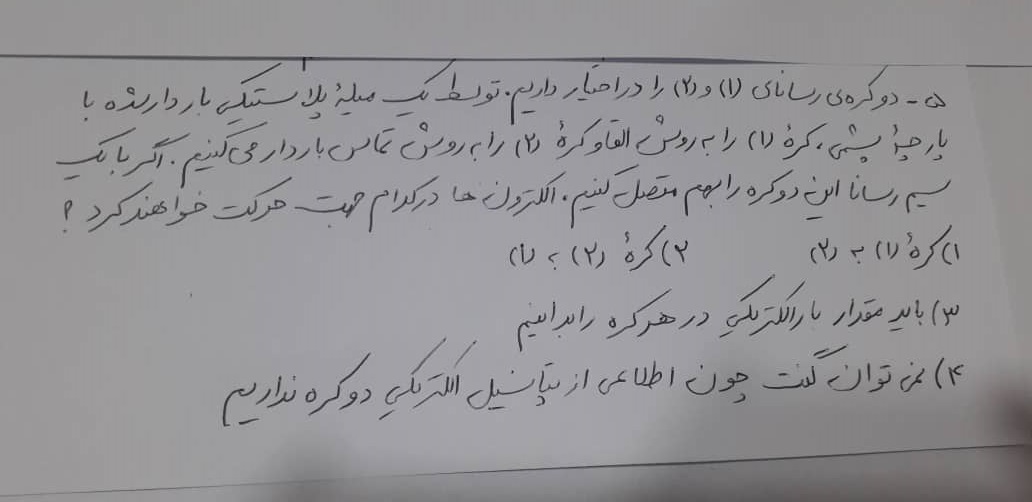 ۵- دو کره‌ی رسانای (۱) و (۲) را در اختیار داریم. توسط یک میلهٔ پلاستیکی باردار شده با
پارچهٔ پشمی، کرهٔ (۱) را به روش القا و کرهٔ (۲) را به روش تماس باردار می‌کنیم. اگر با یک
سیم رسانا این دو کره را بهم متصل کنیم. الکترون ها در کدام جهت حرکت خواهند کرد ؟
۱) کرهٔ (۱) به (۲) ۲) کرهٔ (۲) به (۱)
۳) باید مقدار بار الکتریکی در هر کره را بدانیم
۴) نمی توان گفت چون اطلاعی از پتانسیل الکتریکی دو کره نداریم